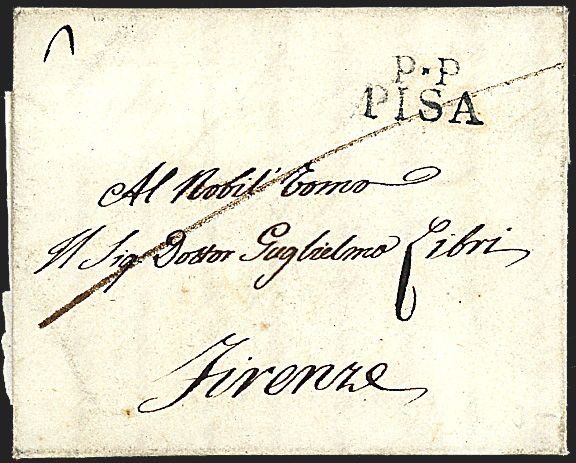 P.P
PISA
Al Nobil' Uomo
Il Sig Dottor Guglielmo Libri
Firenze